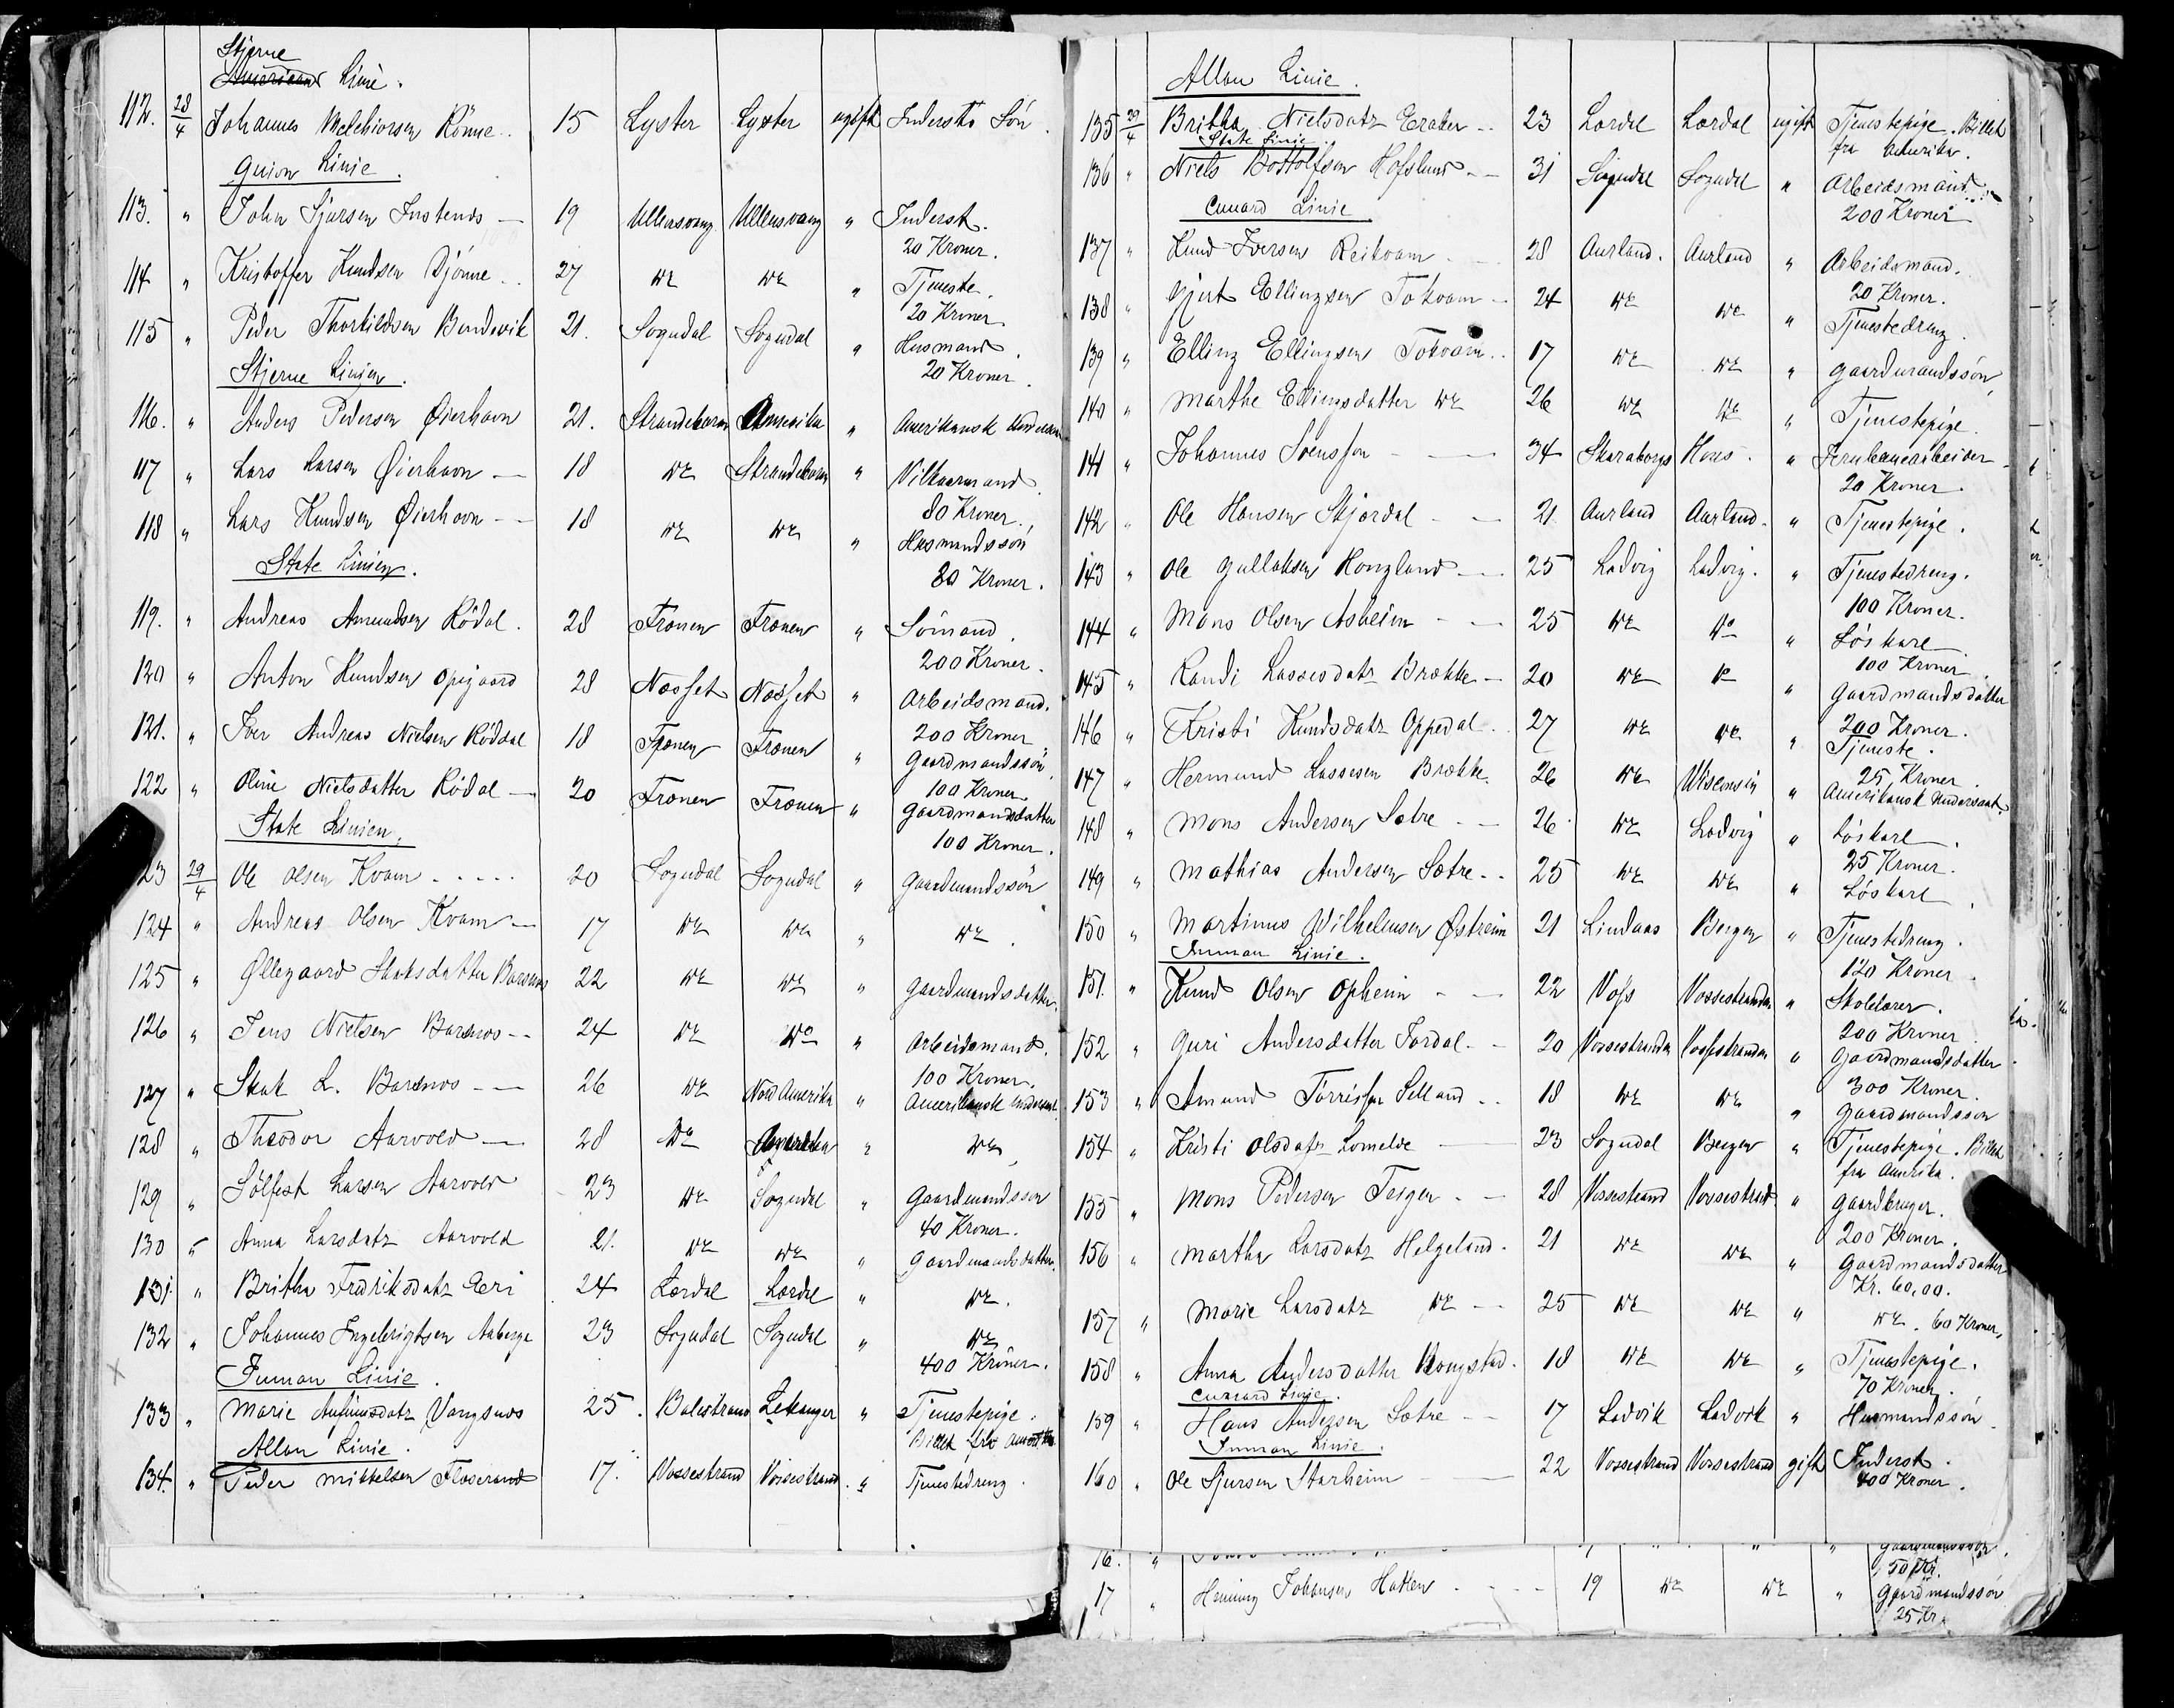 Stjerne
Linie.
112. 28/4 Johannes Melchiorsen Rönne 15 Lyster Lyster ugift Indersts Sön.
Guion Linie.
113. " John Sjursen Instenes 19 Ullensvang Ullensvang " Inderst.
20 Kroner.
114 " Kristoffer Knudsen Djönne 27 do do " Tjeneste.
20 Kroner
115 " Peder Thorkildsen Bondevik 21. Sogndal Sogndal " Husmand.
20 Kroner.
Stjerne Linien.
116. " Anders Pedersen Øierhavn 21. Strandebarm Amerika " Amerikansk
117 " Lars Larsen Øierhavn 18 do Strandebarm " Vilkaarmand.
80 Kroner.
118 " Lars Knudsen Øierhavn 18 do do " Husmandssön
80 Kroner.
State Linien.
119. " Andreas Amundsen Rödal. 28 Frænen Frænen " Sömand.
200 Kroner.
120 " Anton Knudsen Opigaard 28 Næsset Næsset " Arbeidsmand.
200 Kroner
121. " Iver Andreas Nielsen Röddal 18 Frænen Frænen " Gaardmandssön
100 Kroner
122 " Oline Nielsdatter Rödal 20 Frænen Frænen " Gaardmandsdatter
100 Kroner.
State Linien.
23 29/4 Ole Olsen Kvam 20 Sogndal Sogndal " Gaardmandssön
124 " Andreas Olsen Kvam 17 do do " do.
125 " Øllegaard Skaksdatter Barsnes 22 do do " Gaardmandsdatter.
126 " Jens Nielsen Barsnes 24 do do " Arbeidsmand.
100 Kroner.
127 " Skak L. Barsnes 26 do Nord Amerika " Amerikansk Undersaat
128 " Theodor Aarvold 28 do Amerika " do
129 " Sölfest Larsen Aarvold 23 do Sogndal " Gaardmandssön
40 Kroner.
130 " Anna Larsdatr Aarvold 21. do do " Gaardmandsdatter.
131. " Britha Fredriksdatr Eri 24 Lærdal Lærdal " do.
132 " Johannes Ingebrigtsen Aaberge 23 Sogndal Sogndal " do
400 Kroner.
Inman Linie.
133 " Marie Anfinnsdatr Vangsnes 25. Balestrand Lekanger " Tjenestepige.
Billet fra Amerika
Allan Linie.
134. " Peder Mikkelsen 17. Vossestrand Vossestrand. " Tjenestedreng.
Allan Linie.
135 29/4 Britha Nielsdatr 23 Lærdal Lærdal ugift Tjenestepige. Billet
fra Amerika.
State Linie
136 " Niels Bottolfsen Hofslund 31 Sogndal Sogndal " Arbeidsmand.
200 Kroner
Cunard Linie
137 " Knud Iversen Reikvam 28 Aurland. Aurland " Arbeidsmand.
20 Kroner.
138 " Gjert Ellingsen Tokvam 24 do do " Tjenestedreng
139 " Elling Ellingsen Tokvam 17 do do " Gaardmandssön
140 " Marthe Ellingsdatter do 26 do do " Tjenestepige.
141 " Johannes Svensson 34 Skaraborgs " Jernbanearbeider
20 Kroner.
142 " Ole Hansen Skjerdal 21 Aurland Aurland. " Tjenestepige.
143 " Ole Gullaksen Haugland 25 Ladvig Ladvig. " Tjenestedreng.
100 Kroner.
144 " Mons Olsen Asheim 25 do do " Löskarl
100 Kroner
145 " Randi Lassesdatr Brække 20 do do " Gaardmandsdatter
200 Kroner.
146 " Kristi Knudsdatr Oppedal. 27 do do " Tjeneste.
25 Kroner
147 " Hermund Lassesen Brække. 26 do Wisconsin " Amerikansk Undersaat
148 " Mons Andersen Sætre 26 do Ladvig " Löskarl.
25 Kroner.
149 " Mathias Andersen Sætre 25 do do " Löskarl.
150 " Martinus Vilhelmsen Østreim 21 Lindaas Bergen " Tjenestedreng.
120 Kroner
Inman Linie.
151. " Knud Olsen Opheim 22 Voss Vossestranden " Skolelærer.
200 Kroner
152 " Guri Andersdatter Fardal 20 Vossestranden Vossestranden " Gaardmandsdatter.
300 Kroner.
153 " Amund Torrissen Selland 18 do do " Gaardmandssön
154 " Kristi Olsdatr Lomelde 23 Sogndal Bergen " Tjenestepige. Billet
fra Amerika.
155 " Mons Pedersen Teigen 28 Vossestrand Vossestrand " Gaardbruger.
200 Kroner.
156 " Martha Larsdatr Helgeland. 21 do do " Gaardmandsdatter
Kr. 60,00.
157 " Marie Larsdatr do 25 do do " do. 60 Kroner,
158 " Anna Andersdatter 18 do do " Tjenestepige.
70 Kroner.
Cunard Linie.
159 " Hans Andersen Sætre 17 Ladvik Ladvik " Husmandssön
Inman Linie.
160 " Ole Sjursen Starheim 22 Vossestrand Vossestrand gift Inderst.
400 Kroner.
16. " Gaardmandssön.
50 Kr.
17 " Henning Johansen Hatlen 19 do do " Gaardmandssön
25 Kr.